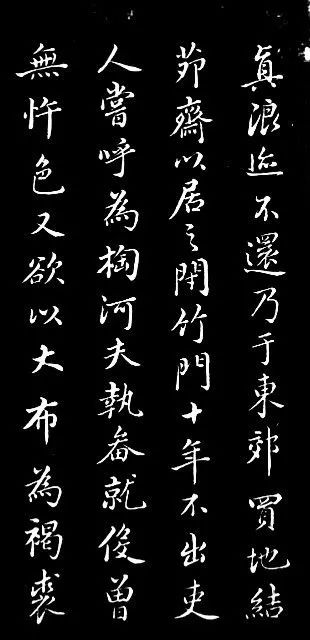 真浪迹不還乃于東郊買地結
茆齋以居之閇竹門十年不出吏
人嘗呼為掏河夫執畚就役曽
無忤色又欲以大布為褐裘